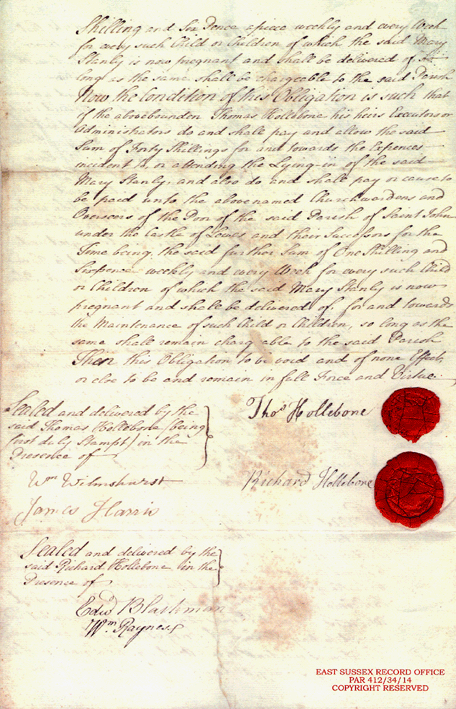 Shilling and Six Pence apiece weekly and every Week
for every such Child or Children of which the said Mary
Stanly is now pregnant and shall be delivered of So
long as the same shall be chargeable to the said Parish
Now the Condition of this Obligation is such that
if the abovebounden Thomas Hollebone his heirs Executors or
Administrators do and shall pay and allow the said
Sum of Forty Shillings for and towards the Expences
incident to, or attending the Lying-in of the said
Mary Stanly, and also do and shall pay or cause to
be paid unto the abovenamed Churchwardens and
Overseers of the Poor of the said Parish of Saint John
under the Castle of Lewes and their Successors for the
Time being, the said further Sum of One Shilling and
Sixpence weekly and every Week for every such Child
or Children of which the said Mary Stanly is now
pregnant and shall be delivered of, for and towards
the Maintenance of such Child or Children, so long as the
same shall remain chargeable to the said Parish
Then this Obligation to be void and of none Effect
or else to be and remain in full Force and Virtue.
Sealed and delivered by the
said Thomas Hollebone (being
first duly Stampt) in the
Presence of
Thos Hollebone
Wm Wilmshurst
Richard Hollebone
James Harris
Sealed and delivered by the
said Richard Hollebone in the
Presence of
Edwd Blackman
Wm Raynes
EAST SUSSEX RECORD OFFICE
PAR 412/34/14
COPYRIGHT RESERVED